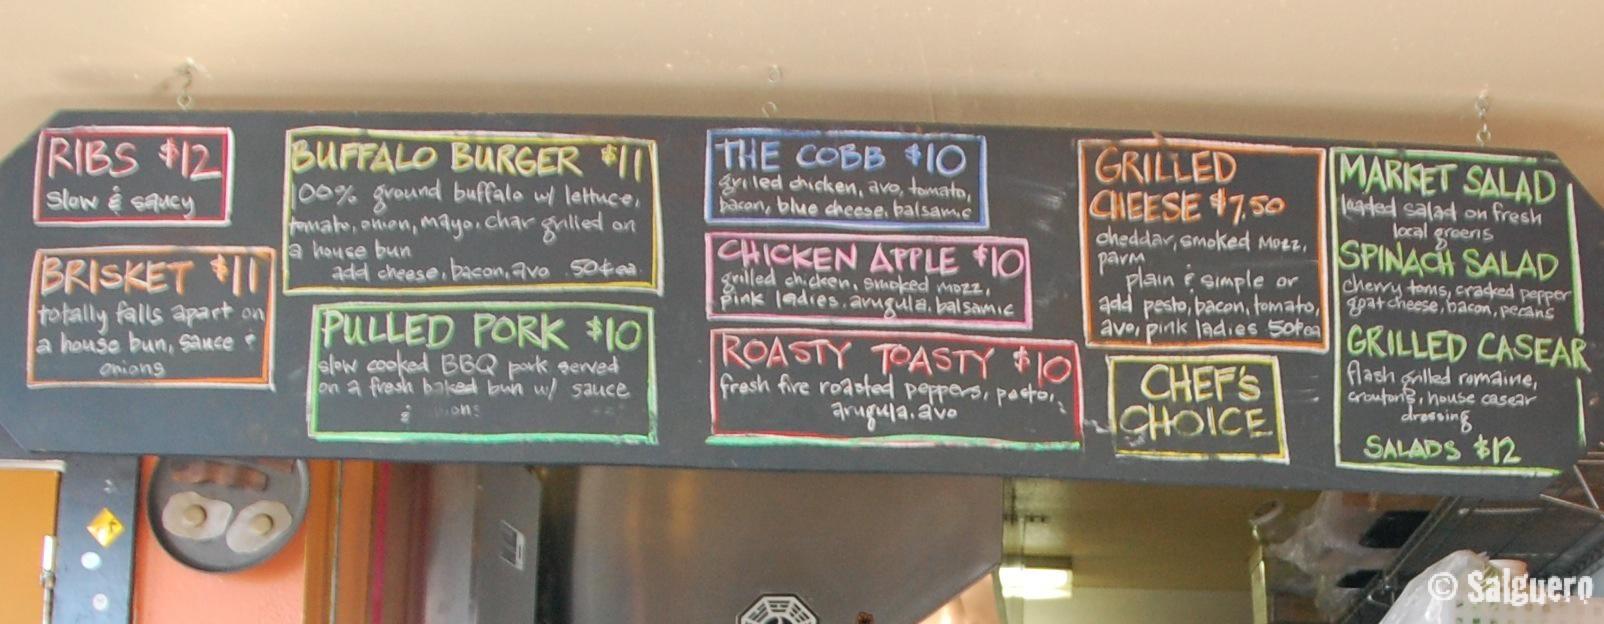 RIBS $12
slow & saucy
BRISKET $11
totally falls apart on
a house bun, sauce &
onions
BUFFALO BURGER $11
100% ground buffalo w/ lettuce,
tomato, onion, mayo, char grilled on
a house bun
add cheese, bacon, avo 50¢ ea
PULLED PORK $10
slow cooked BBQ pork served
on a fresh baked bun w/ sauce
&
THE COBB $10
grilled chicken, avo, tomato,
bacon, blue cheese, balsamic
CHICKEN APPLE $10
grilled chicken, smoked mozz,
pink ladies, arugula, balsamic
ROASTY TOASTY $10
fresh fire roasted peppers, pesto,
arugula, avo
GRILLED
CHEESE $7.50
cheddar, smoked mozz,
parm
plain & simple or
add pesto, bacon, tomato,
avo, pink ladies 50¢ ea
CHEF'S
CHOICE
MARKET SALAD
loaded salad on fresh
local greens
SPINACH SALAD
cherry toms, cracked pepper
goat cheese, bacon, pecans
GRILLED CASEAR
flash grilled romaine,
croutons, house casear
dressing
SALADS $12
© Salguero